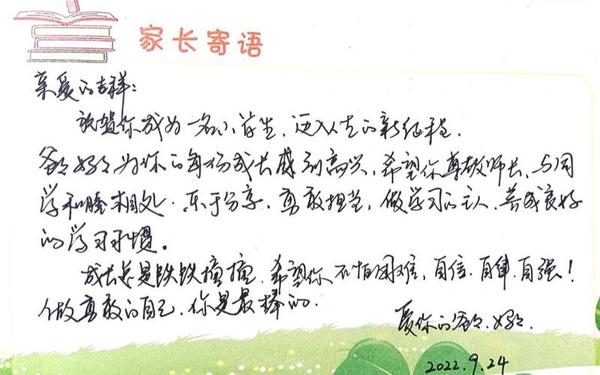 家长寄语
亲爱的吉祥:
祝贺你成为一名小学生,迈入人生的新征程.
爸爸妈妈为你的每份成长感到高兴,希望你尊敬师长,与同
学和睦相处.乐于分享,勇敢担当,做学习的主人,养成良好
的学习习惯。
成长总是跌跌撞撞,希望你不怕困难,自信.自律.自强!
做勇敢的自己,你是最棒的.
爱你的爸爸.妈妈.
2022.9.24